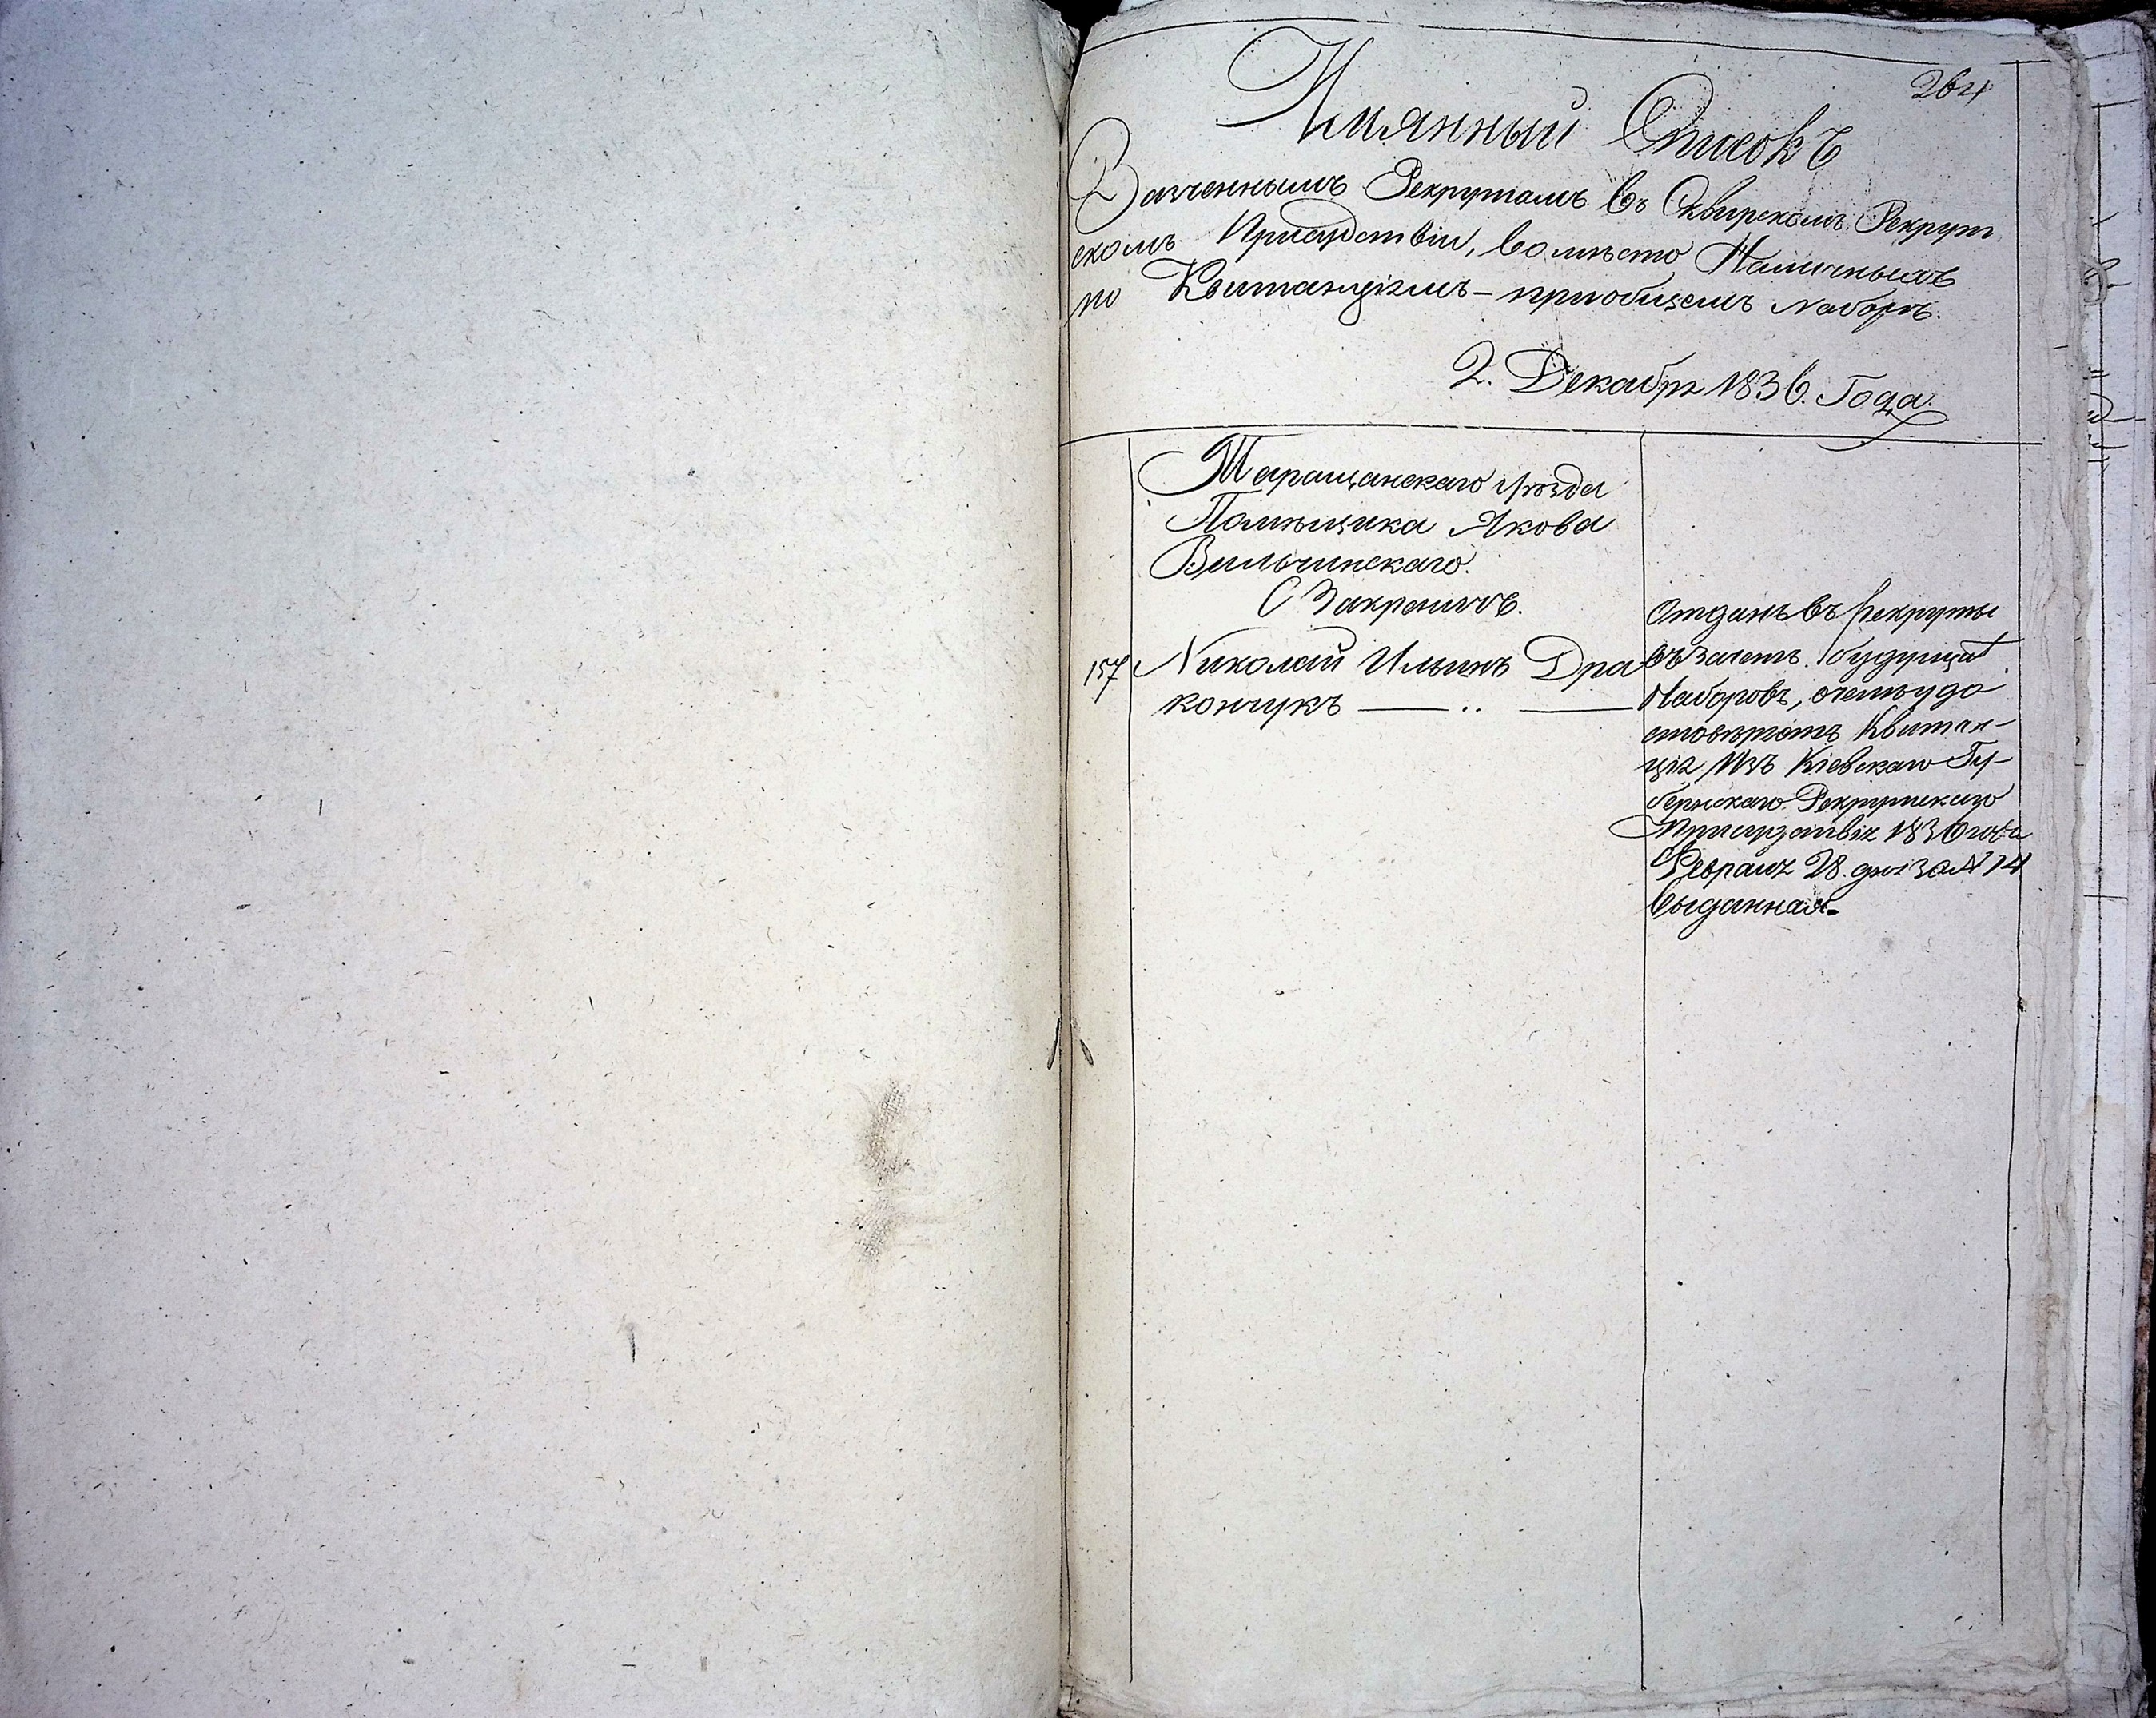 264
Имянный Списокъ
Зачтеннымъ Рекрутамъ въ Сквирскомъ Рекрут
скомъ Присудствіи, во мѣсто Наличныхъ
по Квитанціямъ – приобщемъ наборѣ.
2. Декабря 1836. Года.
Таращанскаго уѣзда
Помѣщика Якова
Вильчинскаго.
С Закрентовъ.
157 Николай Ильинъ Дра
кончукъ — .. —
Отданъ въ рекруты
въ Зачетъ будущихъ
Наборовъ, очемъ удо
стовѣряетъ Квитан–
ція Изъ Кіевскаго Гу–
бернскаго Рекрутскаго
Присудствія 1836 года
Февраля 28. дня за № 14
выданная.